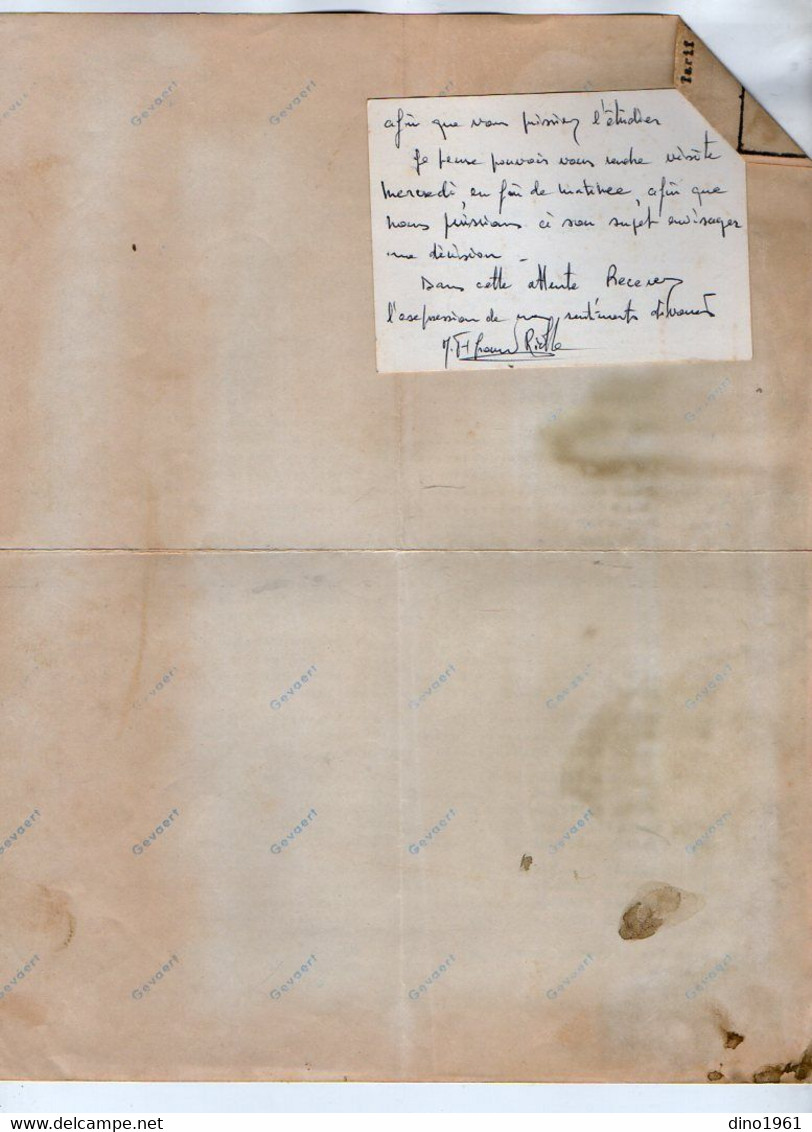 Tarif
afin que vous puissiez l'étudier
Je pense pouvoir vous rendre visite
mercredi, en fin de matinée, afin que
nous puissions à son sujet envisager
une décision -
Dans cette attente Recevez
l'expression de mes sentiments dévoués
Gevaert Gevaert Gevaert
Gevaert
Gevaert Gevaert Gevaert Gevaert Gevaert
Gevaert Gevaert Gevaert Gevaert Gevaert Gevaert
Gevaert Gevaert Gevaert Gevaert Gevaert Gevaert
dino1961